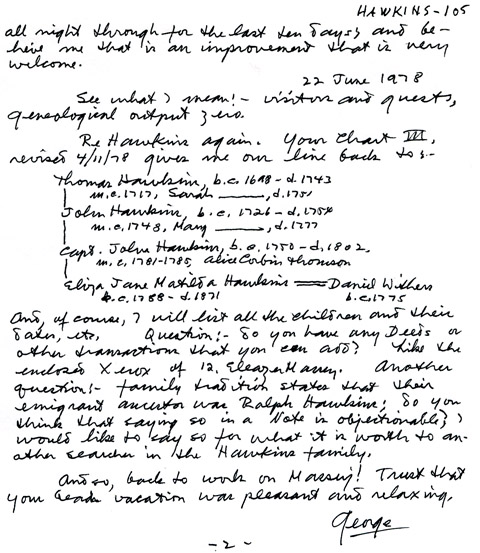 HAWKINS-105
all night through for the last ten days; and be-
lieve me that is an improvement that is very
welcome.
22 June 1978
See what I mean! - visitors and guests,
geneological output zero.
Re Hawkins again. Your Chart III,
revised 4/11/78 gives me our line back to :-
Thomas Hawkins, b.c. 1688 - d. 1743
m.c. 1717, Sarah ———, d. 1751
John Hawkins, b. c. 1726 - d. 1754
m.c. 1748, Mary ———, d. 1777
Capt. John Hawkins, b.c. 1750 - d. 1802,
m.c. 1781-1785, Alice Corbin Thomson
Eliza Jane Matilda Hawkins == Daniel Withers
b.c. 1788 - d. 1871 b.c. 1775
And, of course, I will list all the children and their
dates, etc. Question:- Do you have any Deeds or
other transactions that you can add? Like the
enclosed Xerox of 12. Eleazer Massey. Another
question:- family tradition states that their
emigrant ancestor was Ralph Hawkins; Do you
think that saying so in a Note is objectionable; I
would like to say so for what it is worth to an-
other searcher in the Hawkins family.
And so, back to work on Massey! Trust that
your vacation was pleasant and relaxing.
George
- 2 -